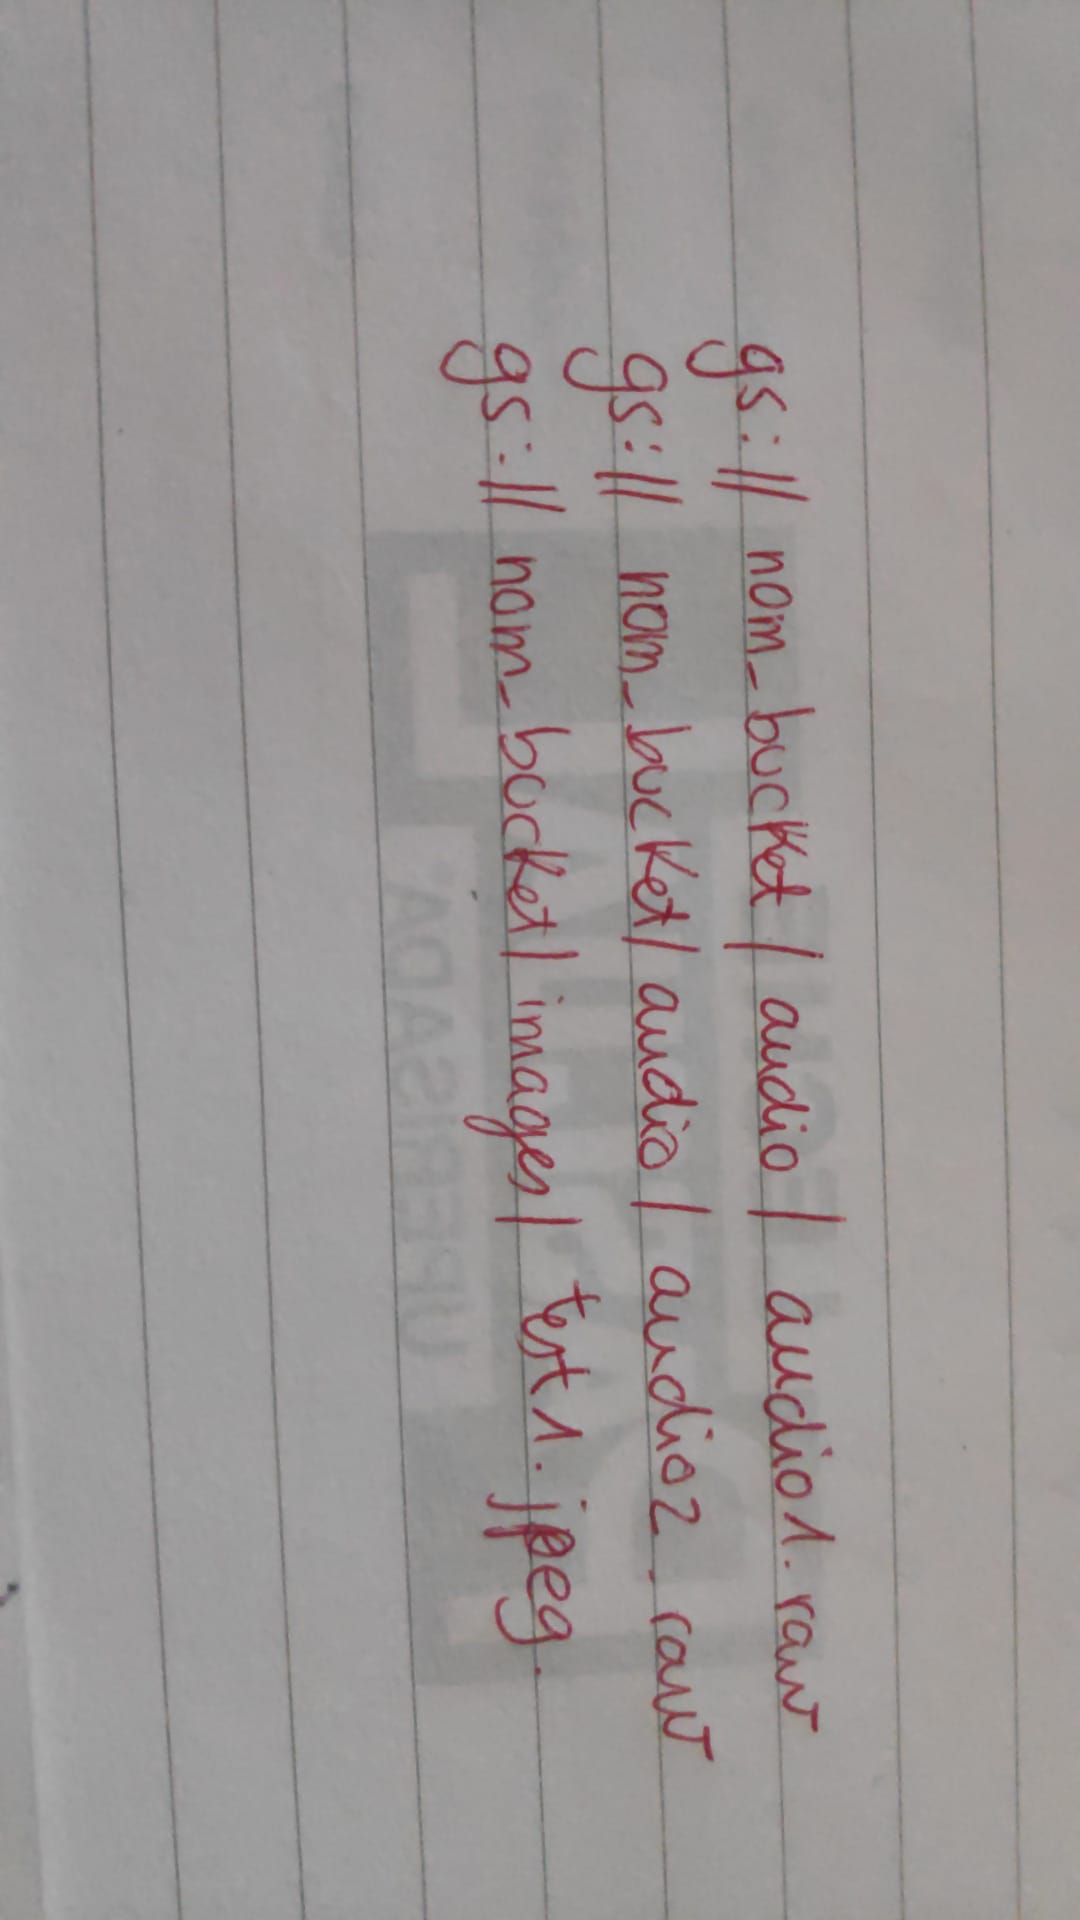 gs:// nom_bucket/audio/audio1.raw
gs:// nom_bucket/audio/audio2.raw
gs:// nom_bucket/images/test1.jpeg.